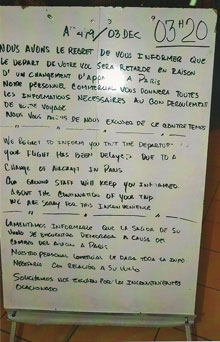 03 DEC
03H20
NOUS AVONS LE REGRET DE VOUS INFORMER QUE
LE DEPART DE VOTRE VOL SERA RETARDE EN RAISON
D'UN CHANGEMENT D'APPAREIL A PARIS
NOTRE PERSONNEL COMMERCIAL VOUS DONNERA TOUTES
LES INFORMATIONS NECESSAIRES AU BON DEROULEMENT
DE VOTRE VOYAGE
NOUS VOUS PRIONS DE NOUS EXCUSER DE CE CONTRETEMPS
WE REGRET TO INFORM YOU THAT THE DEPARTURE
YOUR FLIGHT HAS BEEN DELAYED DUE TO A
CHANGE OF AIRCRAFT IN PARIS
OUR GROUND STAFF WILL KEEP YOU INFORMED
ABOUT THE CONTINUATION OF YOUR TRIP
WE ARE SORRY FOR THIS INCONVENIENCE
LAMENTAMOS INFORMARLE QUE LA SALIDA DE SU
VUELO SE ENCUENTRA DEMORADA A CAUSA DEL
CAMBIO DEL AVION A PARIS
NUESTRO PERSONAL COMERCIAL LE DARA TODA LA INFO
NECESARIA CON RELACION A SU VUELO
SOLICITAMOS POR LOS INCONVENIENTES
OCASIONADO